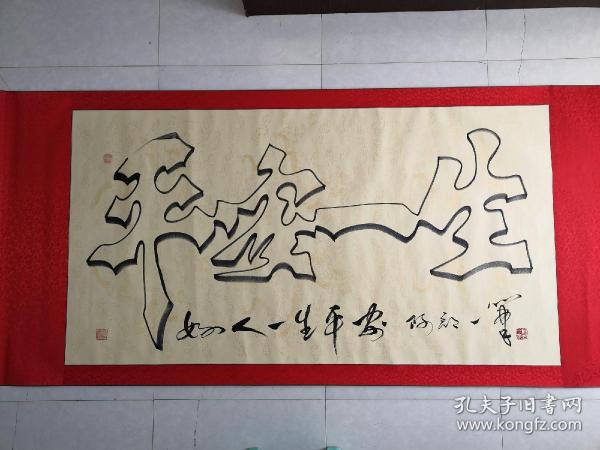 平安一生
好人一生平安 一笔
孔夫子旧书网
www.kongfz.com